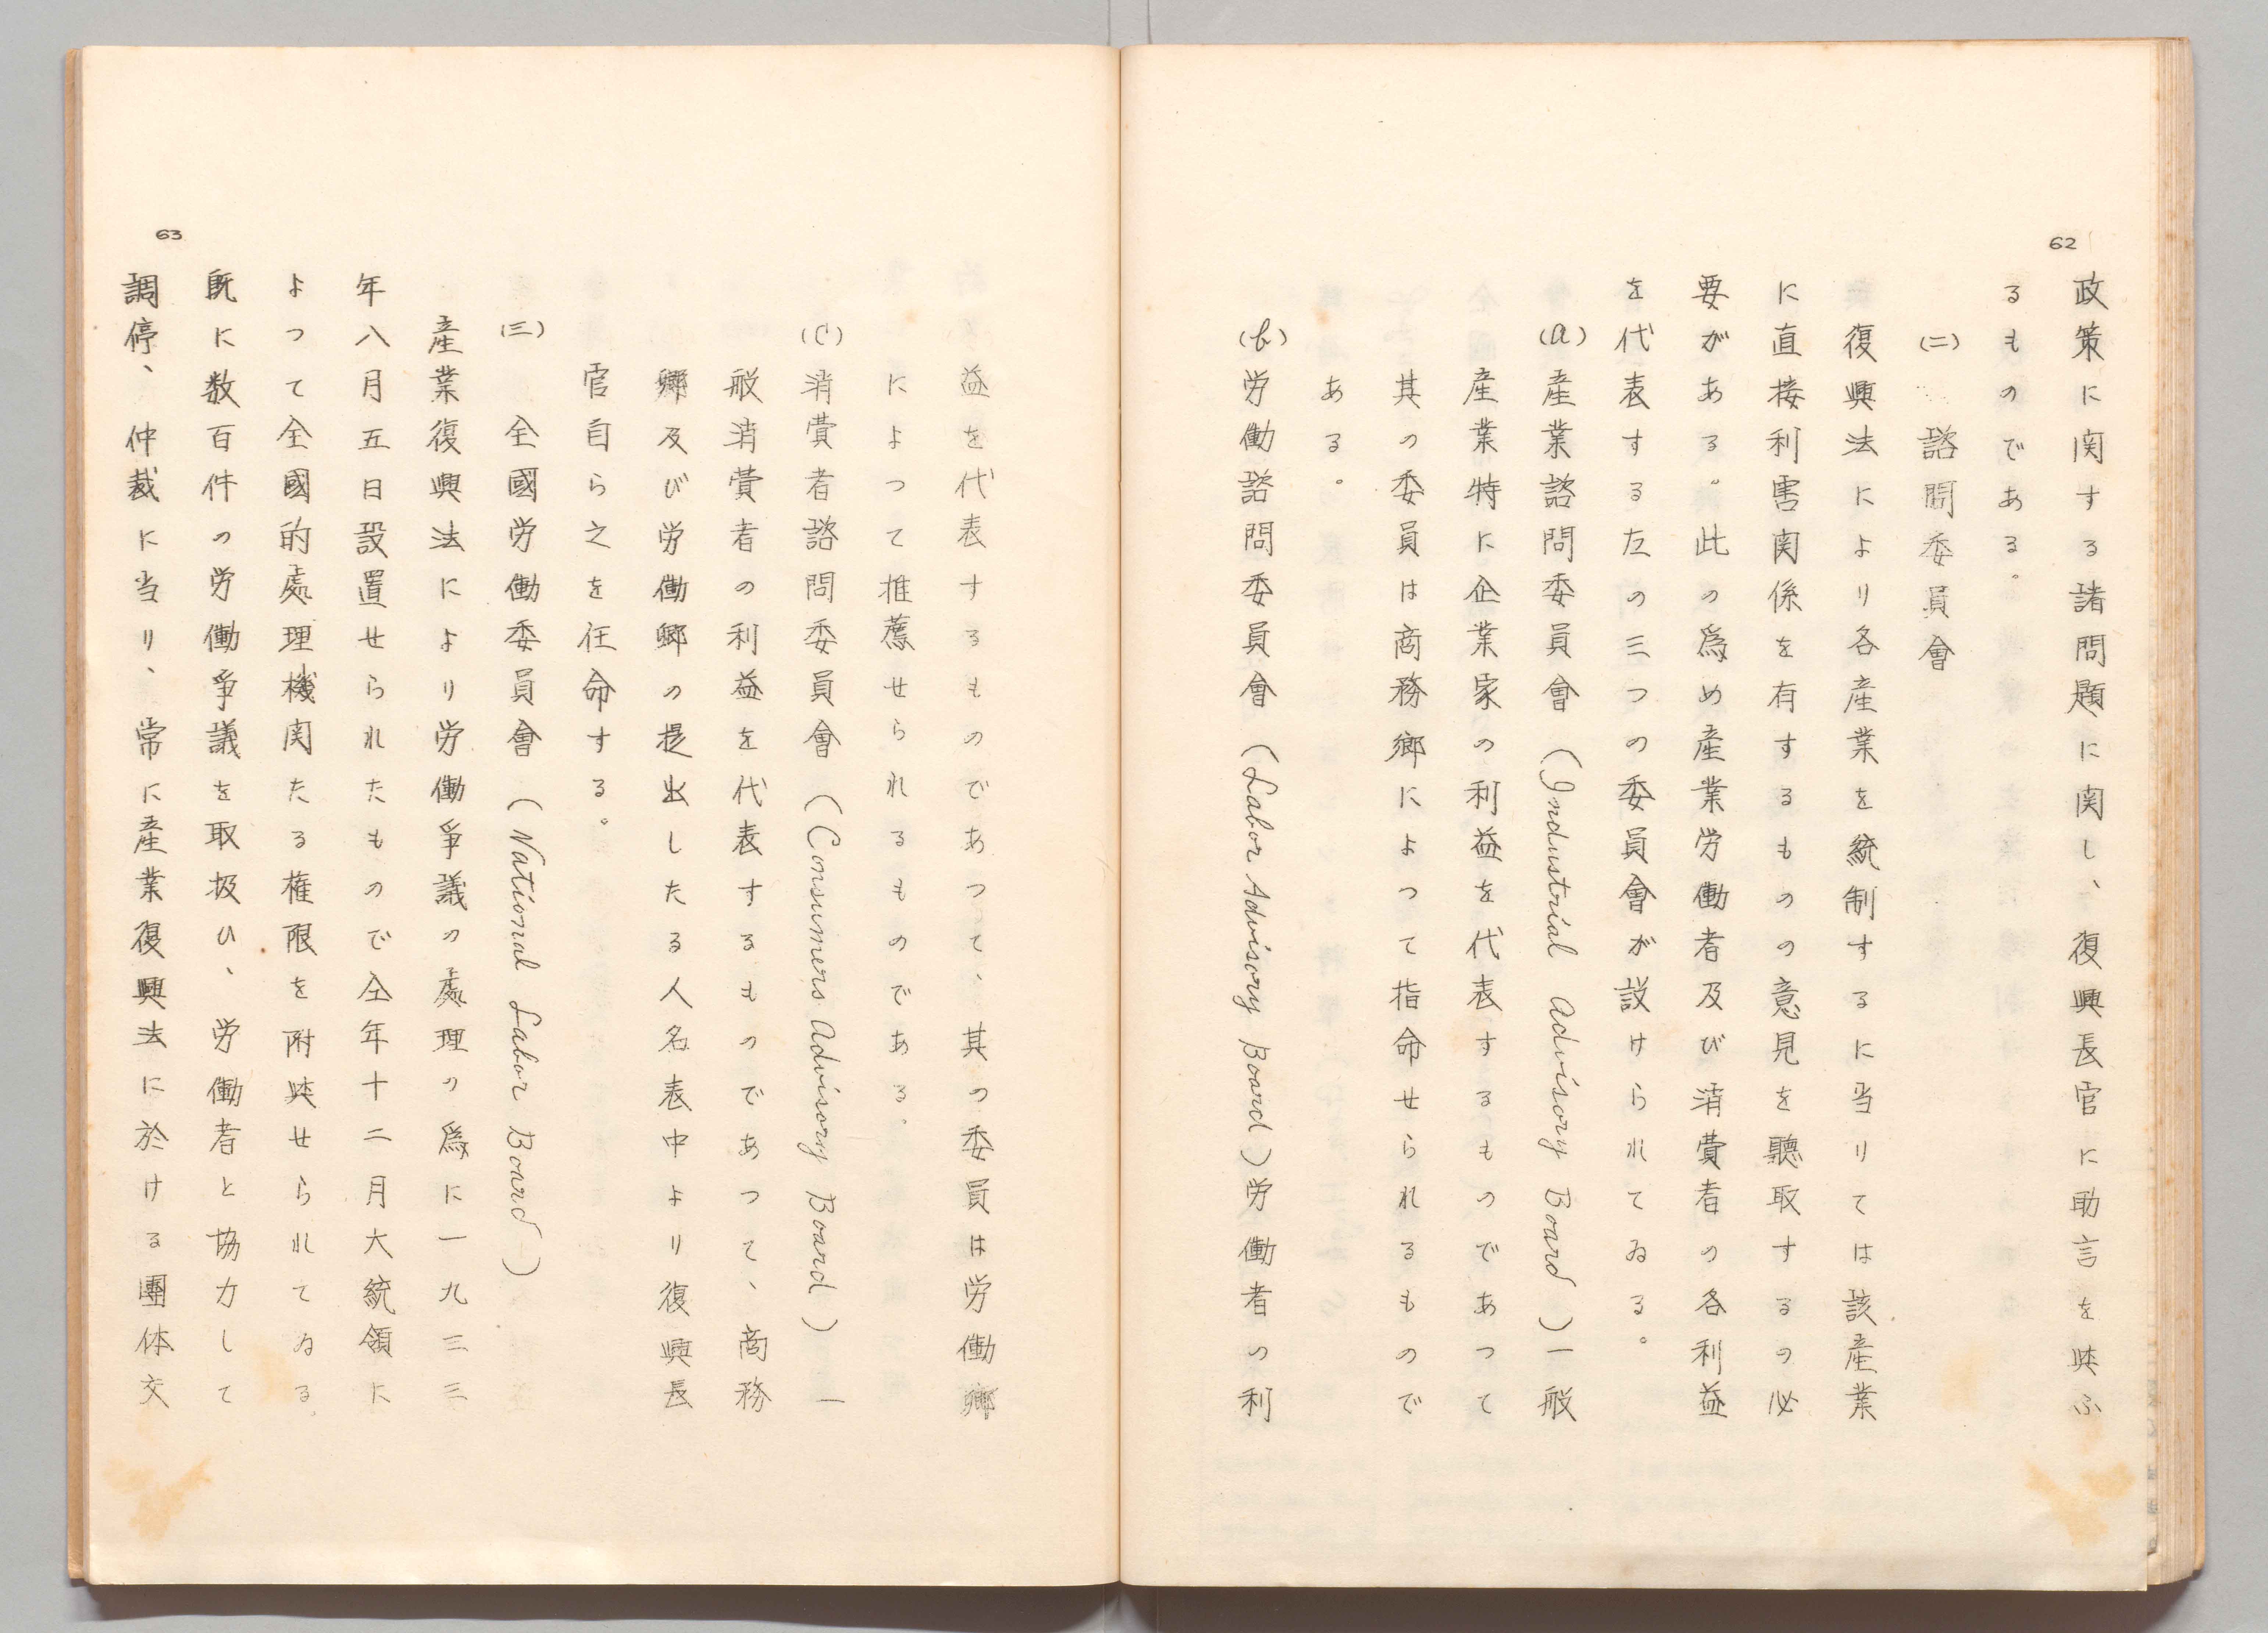 62
政策に関する諸問題に関し、復興長官に助言を與ふ
るものである。
(二) 諮問委員會
復興法により各産業を統制するに当りては該産業
に直接利害関係を有するものの意見を聽取するの必
要がある。此の爲め産業労働者及び消費者の各利益
を代表する左の三つの委員會が設けられてゐる。
(a) 産業諮問委員會 (Industrial Advisory Board) 一般
産業特に企業家の利益を代表するものであつて
其の委員は商務卿によつて指命せられるもので
ある。
(b) 労働諮問委員會 (Labor Advisory Board) 労働者の利
益を代表するものであつて、其の委員は労働卿
によつて推薦せられるものである。
(c) 消費者諮問委員會 (Consumers Advisory Board) 一
般消費者の利益を代表するものであつて、商務
卿及び労働卿の提出したる人名表中より復興長
官自ら之を任命する。
(三) 全國労働委員會 (National Labor Board)
産業復興法により労働爭議の處理の爲に一九三三
年八月五日設置せられたもので仝年十二月大統領に
よつて全國的處理機関たる権限を附與せられてゐる。
既に数百件の労働爭議を取扱ひ、労働者と協力して
調停、仲裁に当り、常に産業復興法に於ける團体交
63